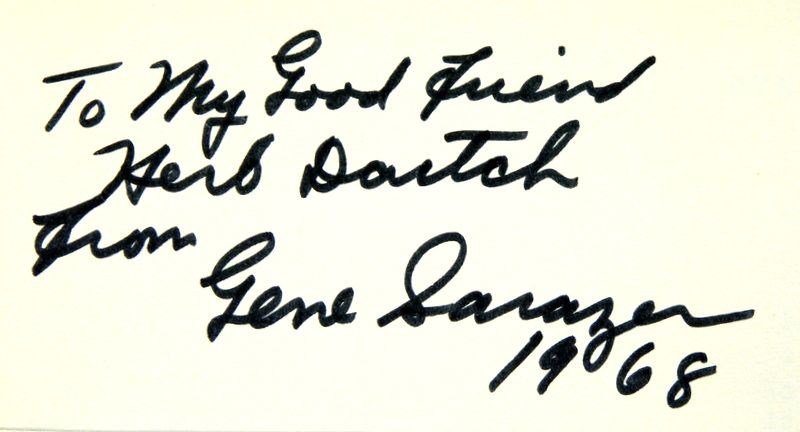 To My Good Friend
Herb Dartch
From
Gene Sarazen
1968